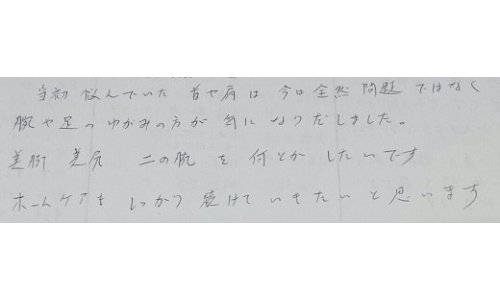 当初 悩んでいた 首や肩は 今は全然 問題ではなく
腕や足の ゆがみの方が 気になりだしました。
美脚 美尻 二の腕 を 何とか したいです
ホームケアも しっかり 続けて いきたい と 思います